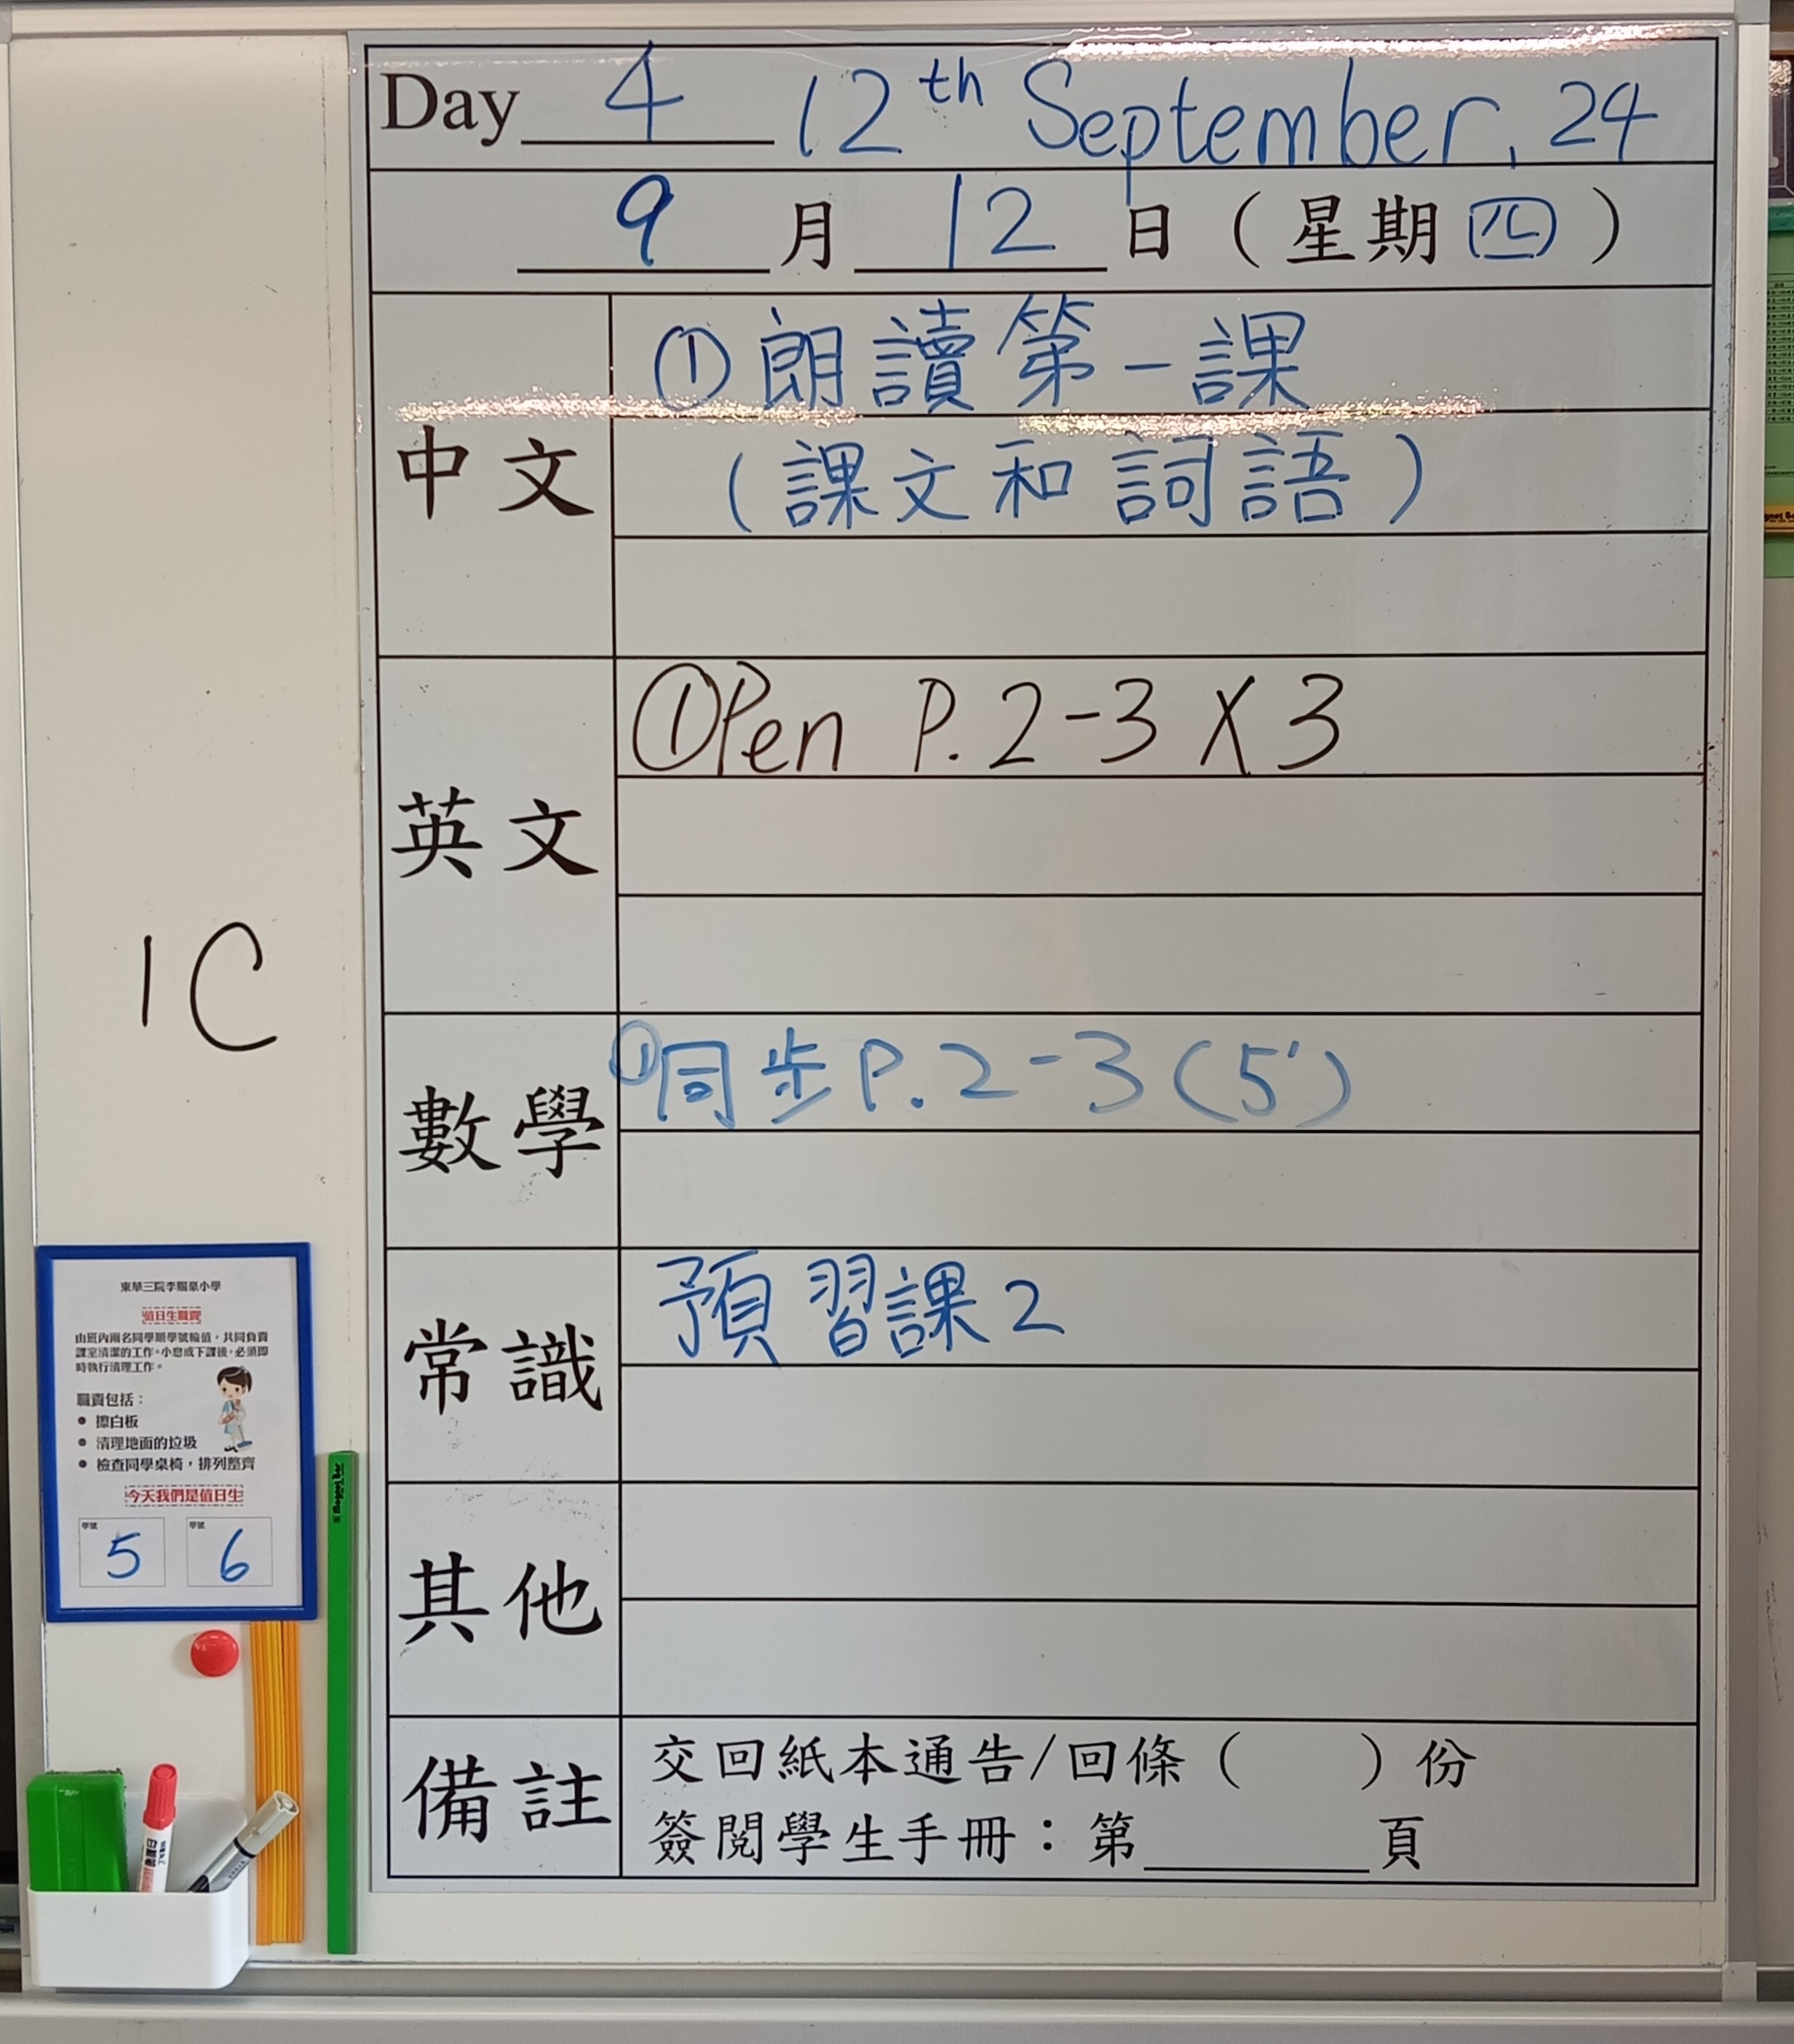 Day 4 12th September, 24
9月12日（星期四）
中文
①朗讀第一課
（課文和詞語）
英文
①Pen P.2-3 X 3
數學
①同步P.2-3(5')
常識
預習課2
其他
備註
交回紙本通告/回條（ ）份
簽閱學生手冊：第______頁
1C
東華三院李賜豪小學
值日生職責
由班內兩名同學順學號輪值，共同負責
課室清潔的工作。小息或下課後，必須即
時執行清理工作。
職責包括：
• 擦白板
• 清理地面的垃圾
• 檢查同學桌椅，排列整齊
今天我們是值日生
學號 5 學號 6
Magnet Bar